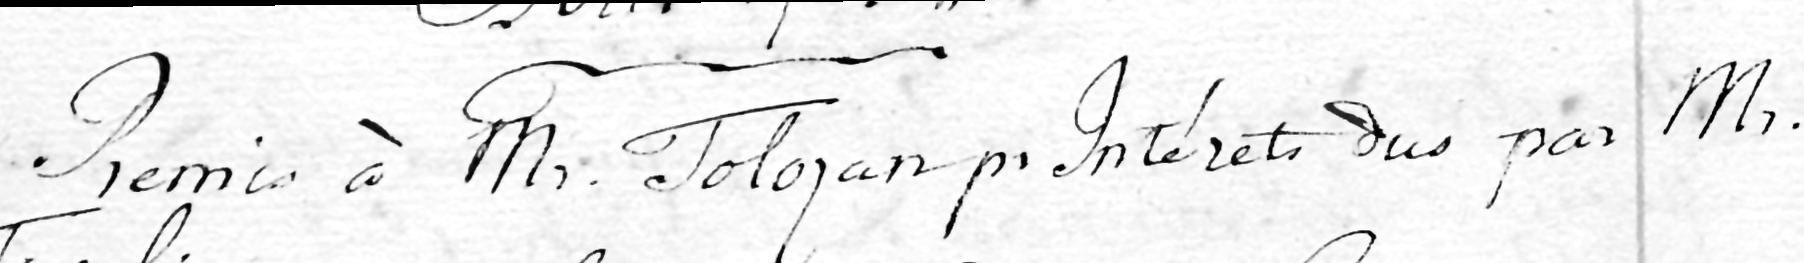 Remis à Mr. Tolozan pr Intérets dus par Mr.